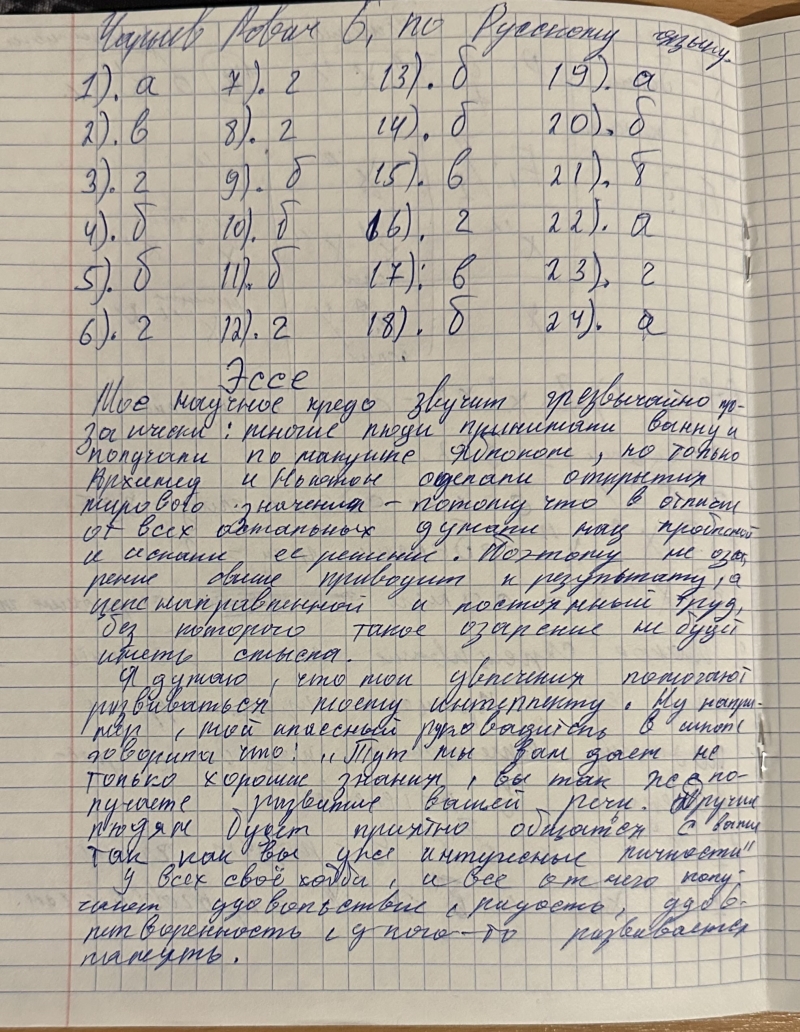 Чарыев Рович Б, по Русскому языку.
1). а 7). г 13). б 19). а
2). в 8). г 14). б 20). б
3). г 9). б 15). в 21). б
4). б 10). б 16). г 22). а
5). б 11). б 17). в 23). г
6). г 12). г 18). б 24). а
Эссе
Мое научное кредо звучит чрезвычайно про-
заически: многие люди принимали ванну и
получали по макушке яблоком, но только
Архимед и Ньютон сделали открытия
мирового значения – потому что в отличи
от всех остальных думали над проблемой
и искали ее решение. Поэтому не оза,
рение свыше приводит к результату, а
целенаправленной и постоянный труд,
без которого такое озарение не будет
иметь смысла.
Я думаю, что мои увлечения помогают
развиваться моему интеллекту. Ну напри-
мер, мой классный руководитель в школе
говорила что: „Тут мы вам дает не
только хорошие знания, вы так же по-
лучаете развитие вашей речи. Другим
людям будет приятно общаться с вами
так как вы уже интересные личности"
У всех своё хобби, и все от него полу-
чают удовольствие, радость, удов-
летворенность, у кого-то развивается
память.